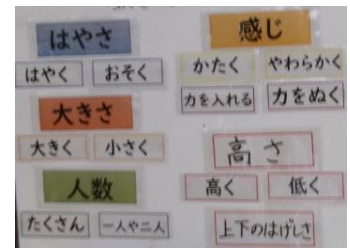 はやさ
はやく おそく
大きさ
大きく 小さく
人数
たくさん 一人や二人
感じ
かたく やわらかく
力を入れる 力をぬく
高さ
高く 低く
上下のはげしさ